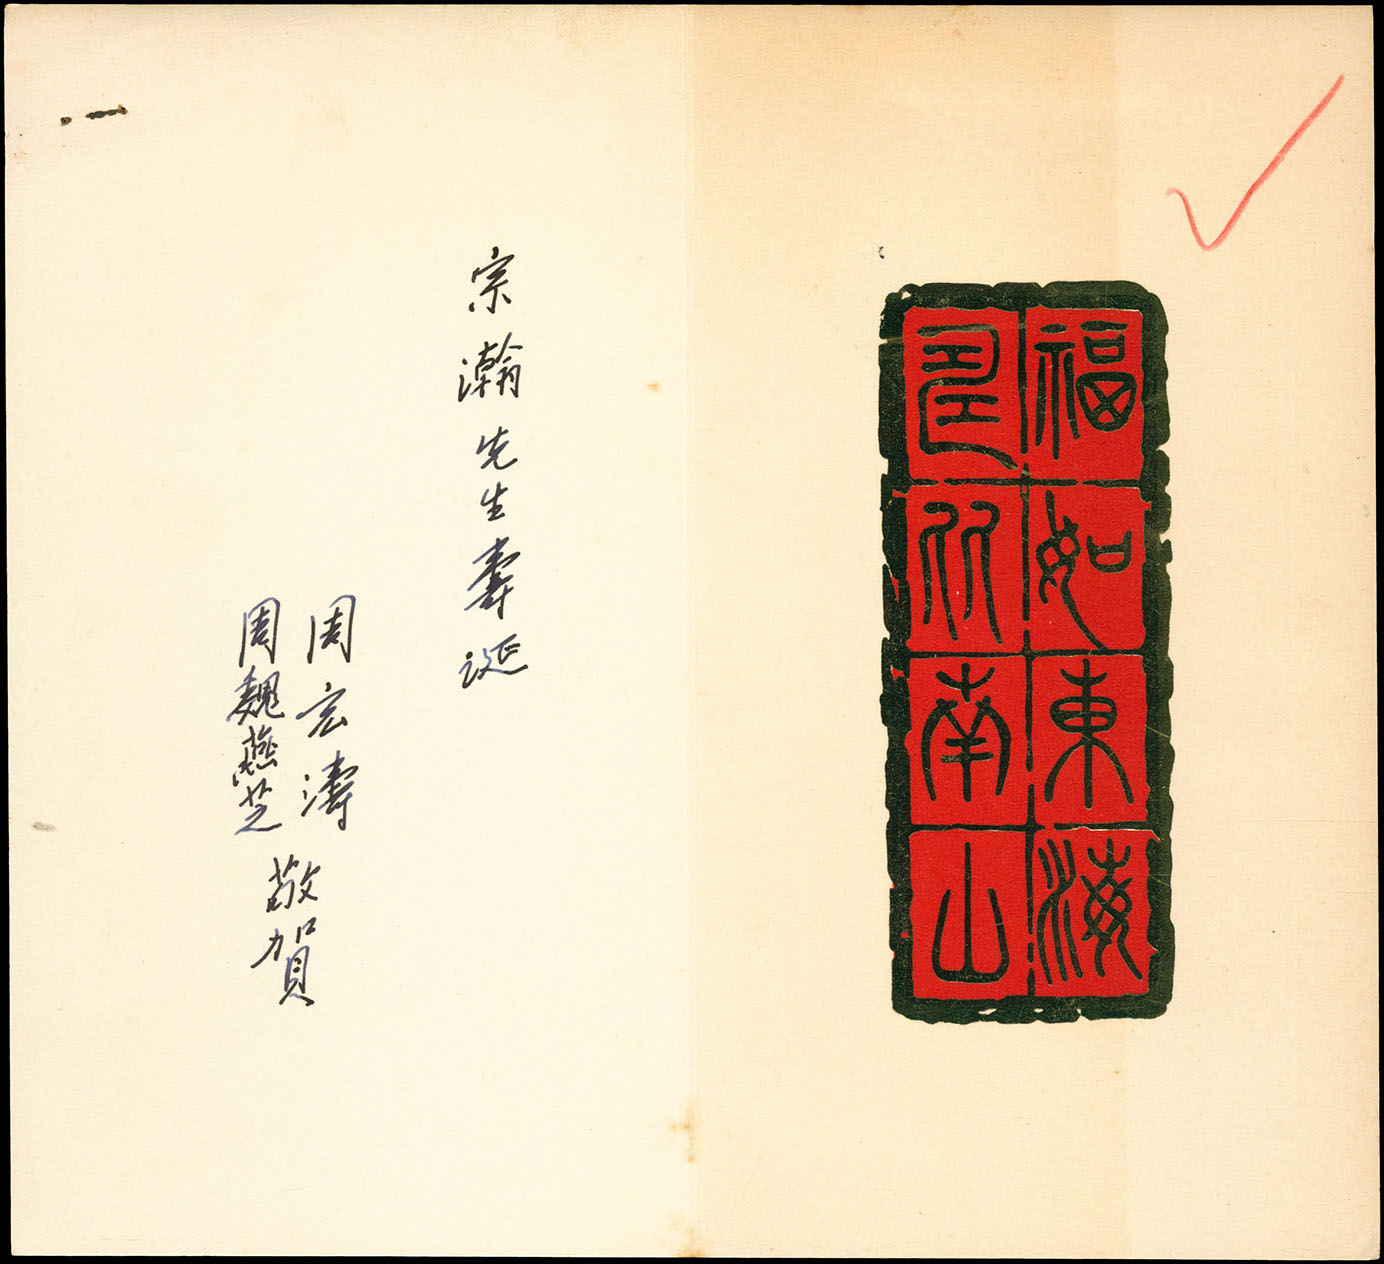 福如東海
壽比南山
宗瀚先生壽誕
周宏濤
周魏燕芝
敬賀